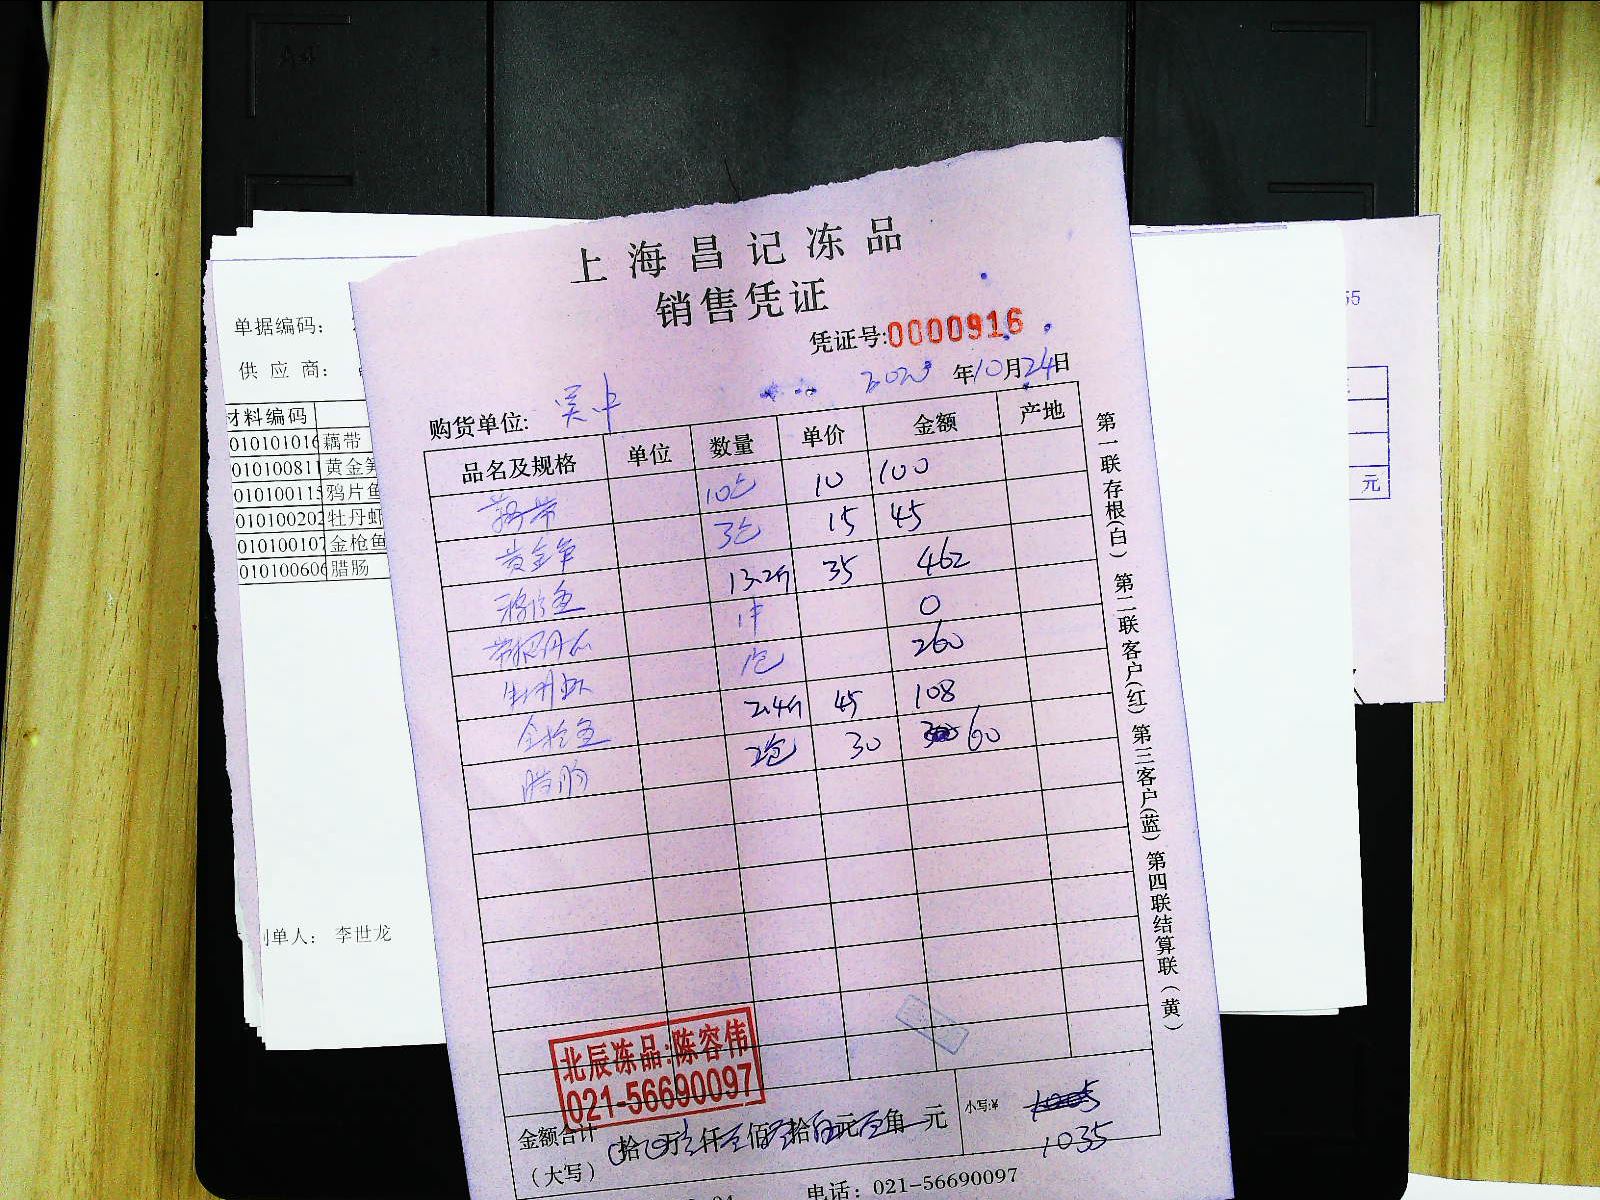 上海昌记冻品
销售凭证
凭证号:0000916
2023年10月24日
购货单位: 吴中
品名及规格 单位 数量 单价 金额 产地
藕带 10包 10 100
黄金笋 3包 15 45
鸦片鱼 13.2斤 35 462
1件 0
牡丹虾 1包 260
金枪鱼 2.4斤 45 108
腊肠 2包 30 60
北辰冻品:陈容伟
021-56690097
金额合计
(大写)
拾 万 仟 佰 拾 元 角 元
小写:¥ 1005
1035
电话: 021-56690097
第一联存根(白) 第二联客户(红) 第三客户(蓝) 第四联结算联(黄)
单据编码:
供应商:
材料编码
010101016 藕带
010100811 黄金笋
010100115 鸦片鱼
010100202 牡丹虾
010100107 金枪鱼
010100606 腊肠
制单人: 李世龙
55
元
A4